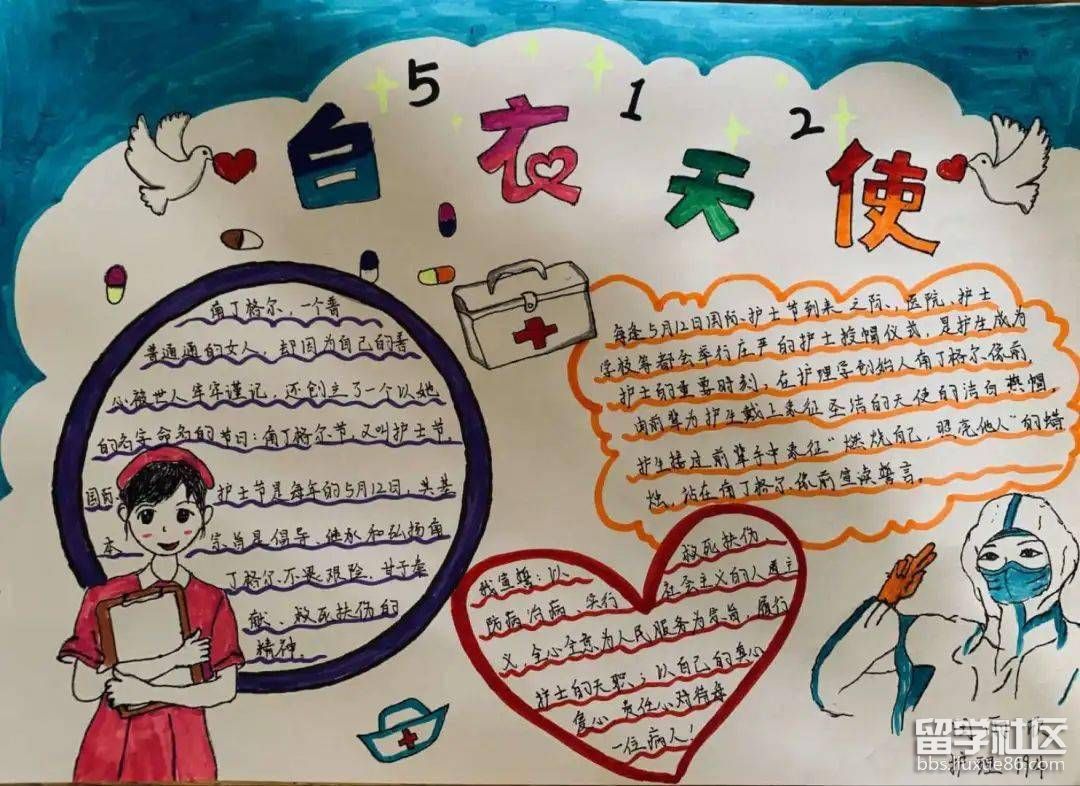 5 1 2
白衣天使
南丁格尔,一个普
普通通的女人,却因为自己的善
心被世人牢牢谨记,还创立了一个以她
的名字命名的节日:南丁格尔节,又叫护士节.
国际 护士节是每年的5月12日.其基
本 宗旨是倡导、继承和弘扬南
丁格尔不畏艰险、甘于奉
献、救死扶伤的
精神.
每逢5月12日国际护士节到来之际,医院、护士
学校等都会举行庄严的护士授帽仪式,是护生成为
护士的重要时刻,在护理学创始人南丁格尔像前,
由前辈为护生戴上象征圣洁的天使的洁白燕帽,
护生接过前辈手中象征“燃烧自己,照亮他人”的蜡
烛,站在南丁格尔像前宣读誓言。
我宣誓:以 救死扶伤、
防病治病,实行 社会主义的人道主
义,全心全意为人民服务为宗旨,履行
护士的天职;以自己的真心
爱心 责任心对待每
一位病人!
护理
留学社区
bbs.liuxue86.com